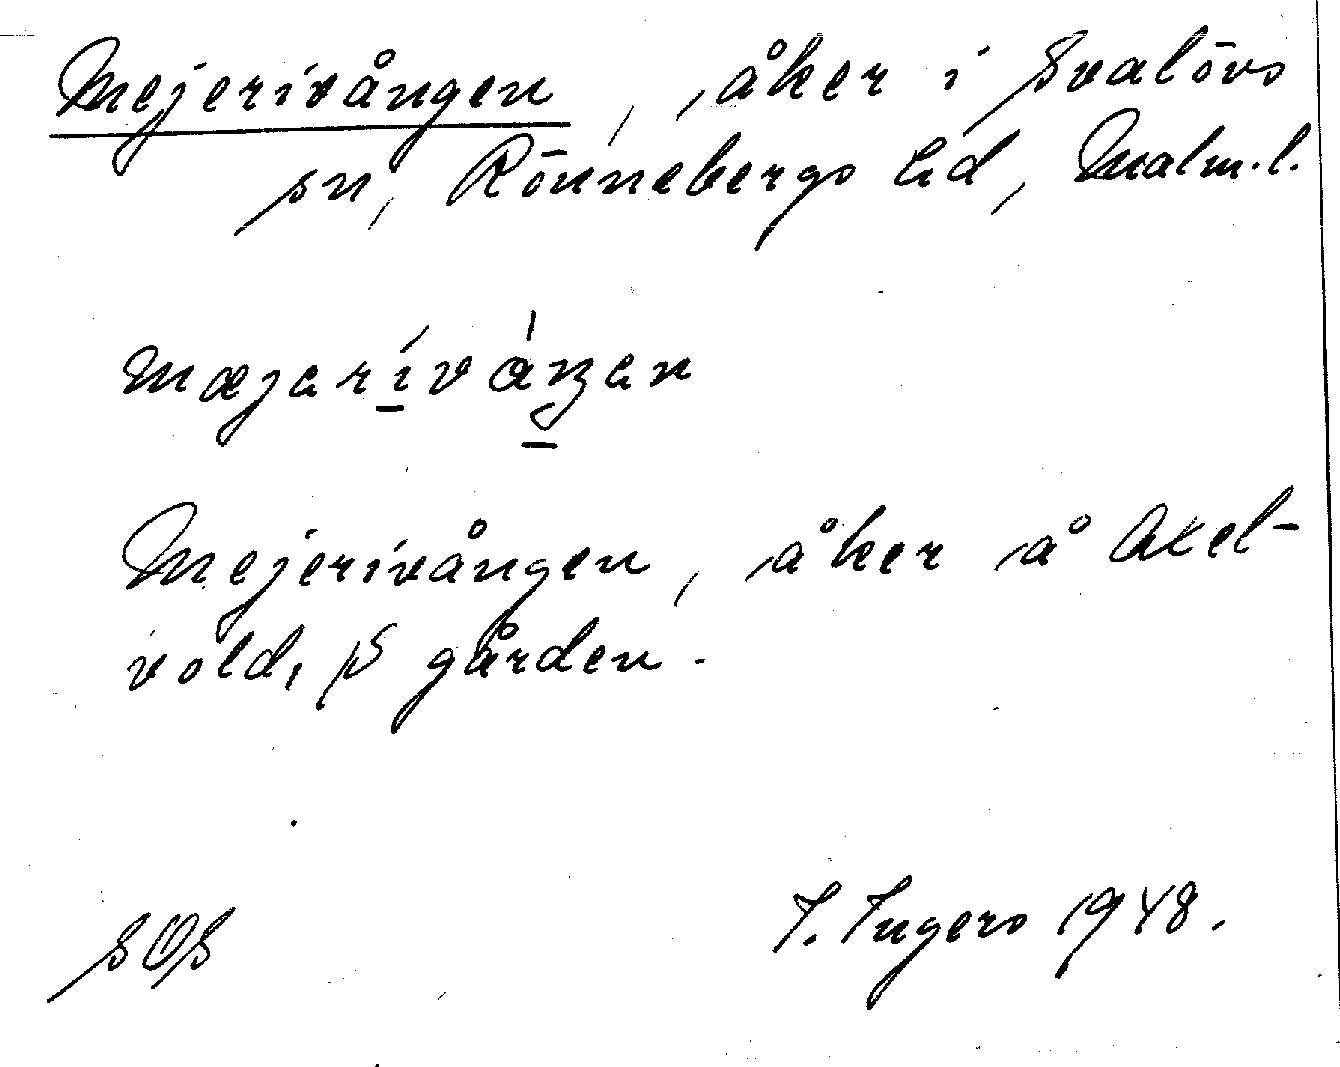 Mejerivången, åker i Svalövs
sn, Rönnebergs hd, Malm.l.
mæjaríváŋan
Mejerivången, åker å Axel-
vold, S gården.
SOS
I. Ingers 1948.